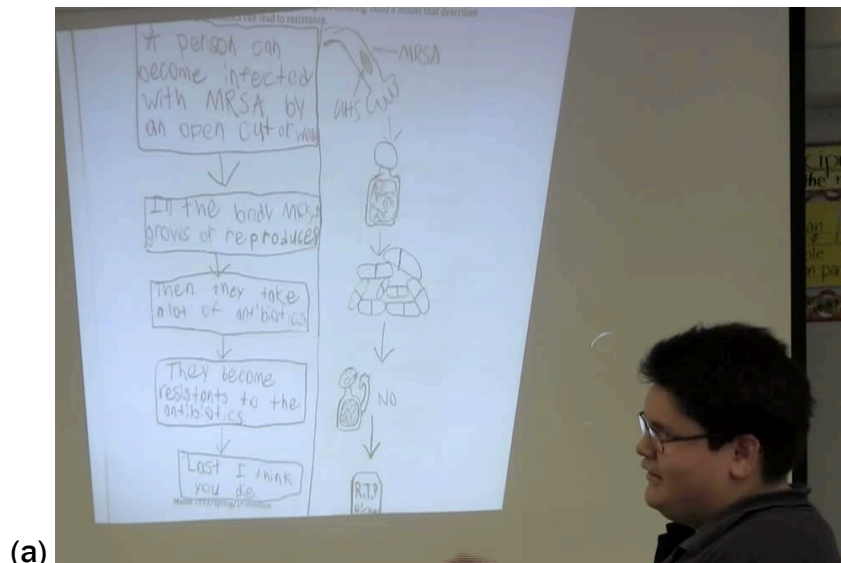 build a model that describes
can lead to resistance.
A person can
become infected
with MRSA by
an open cut or
MRSA
In the body MRSA
grows or reproduces
Then they take
alot of antibiotics
They become
resistants to the
antibiotics
NO
Last I think
you die
R.I.P
the
an
(a)